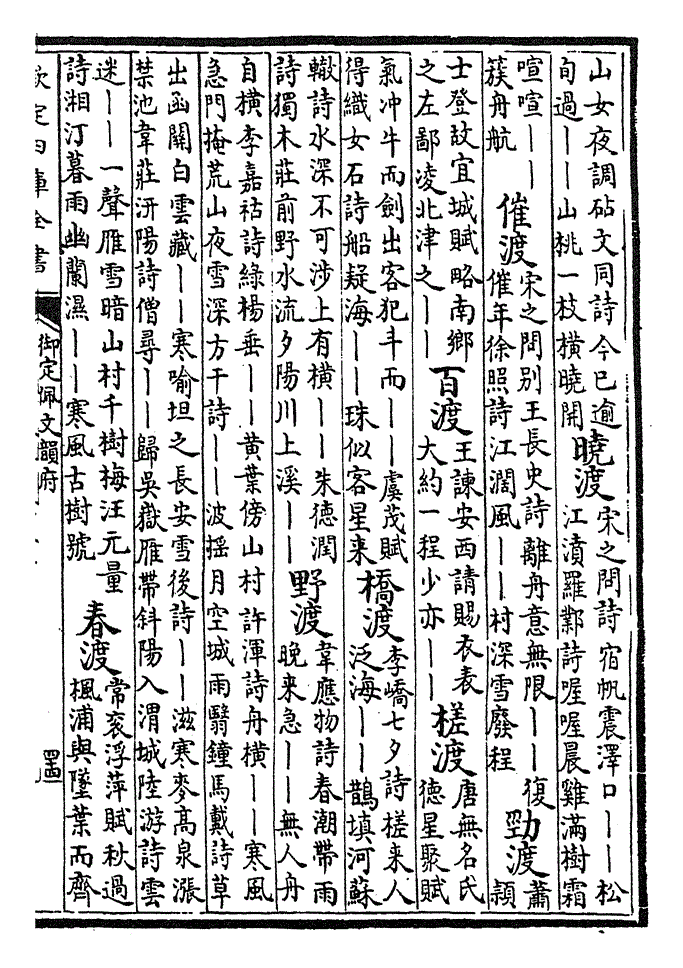 山女夜調砧文同詩今已逾
旬過——山桃一枝橫曉開
曉渡
宋之問詩宿帆震澤口——松
江濆羅鄴詩喔喔晨雞滿樹霜
喧喧——
簇舟航
催渡
宋之問別王長史詩離舟意無限——復
催年徐照詩江濶風——村深雪廢程
勁渡
蕭
穎
士登故宜城賦略南鄉
之左鄙凌北津之——
百渡
王諫安西請賜衣表
大約一程少亦——
槎渡
唐無名氏
德星聚賦
氣冲牛而劍出客犯斗而——虞茂賦
得織女石詩船疑海——珠似客星来
橋渡
李嶠七夕詩槎来人
泛海——鵲填河蘇
轍詩水深不可涉上有橫——朱德潤
詩獨木莊前野水流夕陽川上溪——
野渡
韋應物詩春潮帶雨
晚来急——無人舟
自橫李嘉祜詩綠楊垂——黃葉傍山村許渾詩舟橫——寒風
急門掩荒山夜雪深方干詩——波摇月空城雨翳鐘馬戴詩草
出函關白雲藏——寒喻坦之長安雪後詩——滋寒麥高泉漲
禁池韋莊汧陽詩僧尋——歸吳嶽雁帶斜陽入渭城陸游詩雲
迷——一聲雁雪暗山村千樹梅汪元量
詩湘汀暮雨幽蘭濕——寒風古樹號
春渡
常衮浮萍賦秋過
楓浦與墜葉而齊
欽定四庫全書
御定佩文韻府